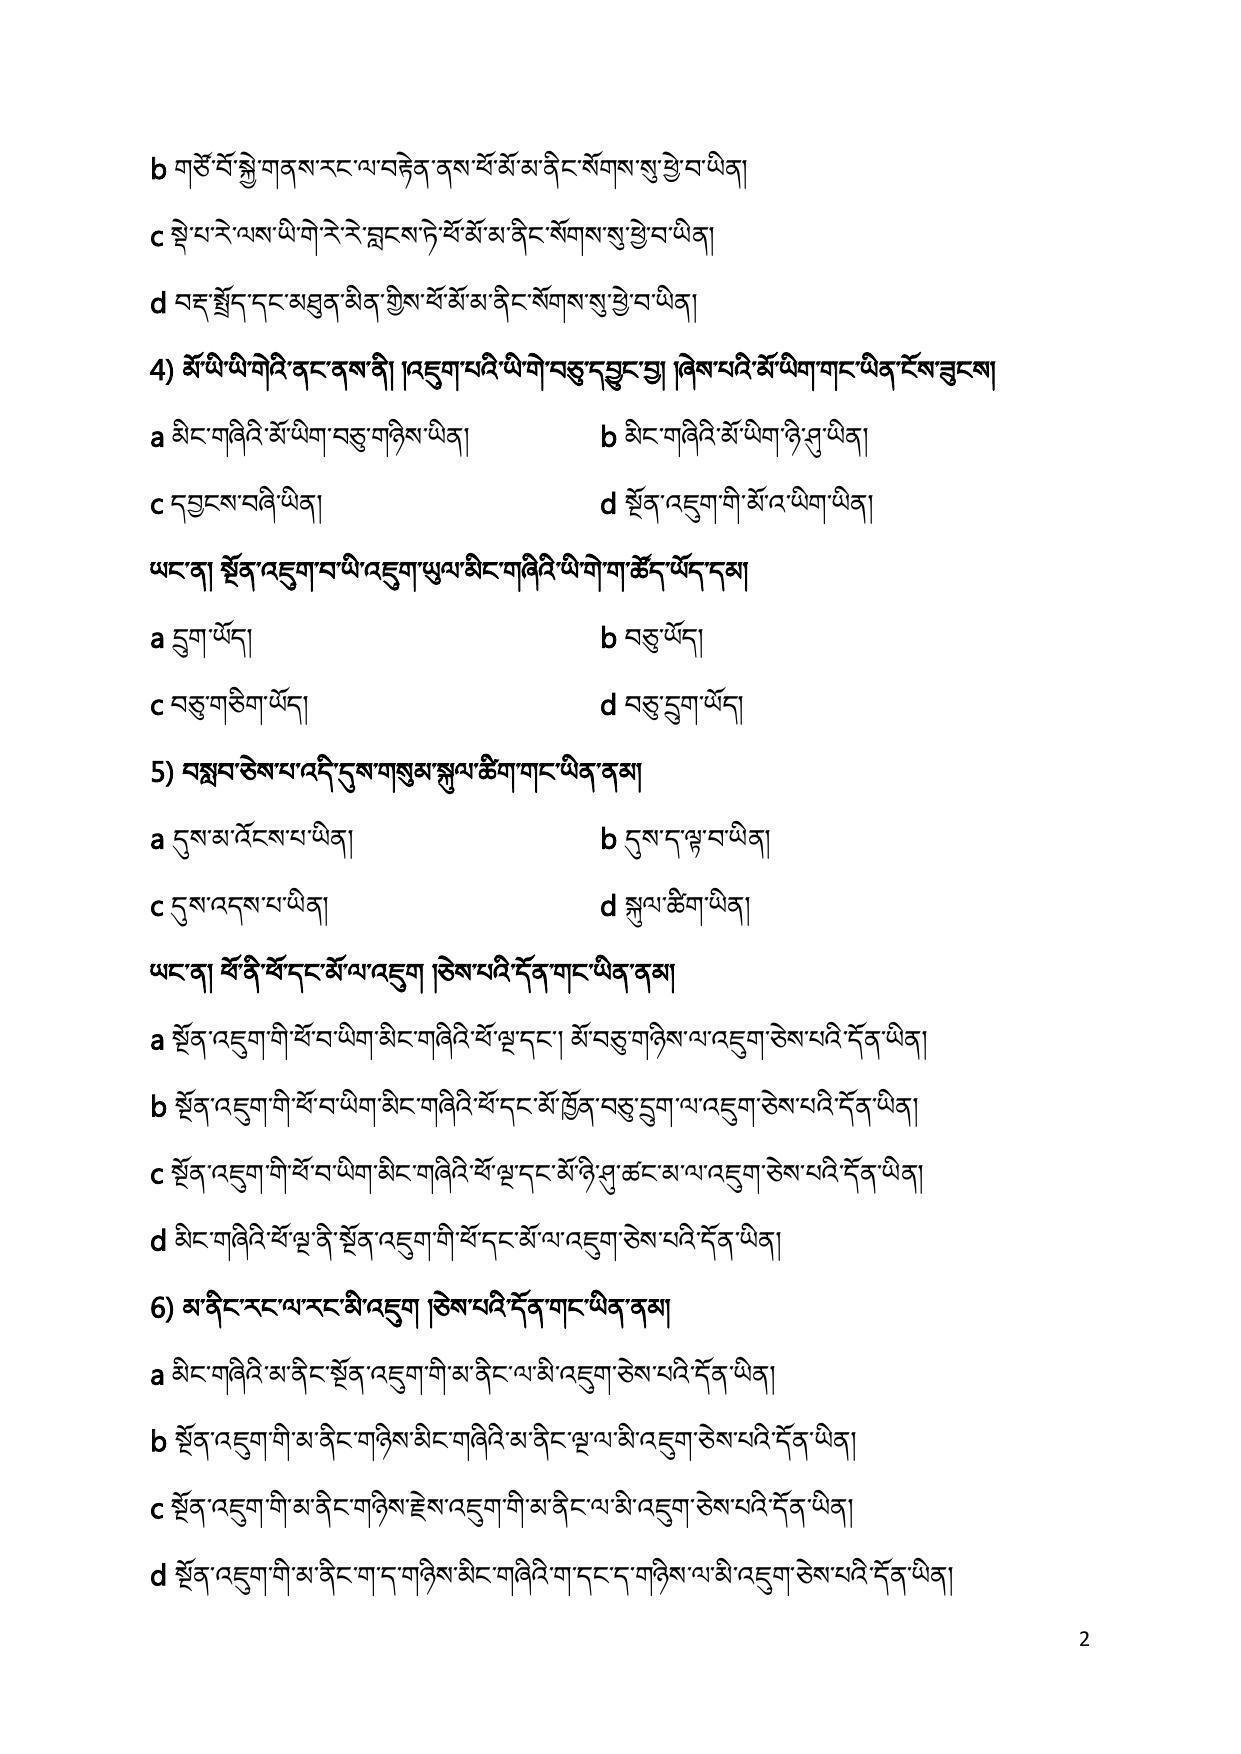 b གཙོ་བོ་སྐྱེ་གནས་རང་ལ་བརྟེན་ནས་ཕོ་མོ་མ་ནིང་སོགས་སུ་ཕྱེ་བ་ཡིན།
c སྡེ་པ་རེ་ལས་ཡི་གེ་རེ་རེ་བླངས་ཏེ་ཕོ་མོ་མ་ནིང་སོགས་སུ་ཕྱེ་བ་ཡིན།
d བརྡ་སྤྲོད་དང་མཐུན་མིན་གྱིས་ཕོ་མོ་མ་ནིང་སོགས་སུ་ཕྱེ་བ་ཡིན།
4) མོ་ཡི་ཡི་གེའི་ནང་ནས་ནི། །འཇུག་པའི་ཡི་གེ་བཅུ་དབྱུང་བྱ། །ཞེས་པའི་མོ་ཡིག་གང་ཡིན་ངོས་ཟུངས།
a མིང་གཞིའི་མོ་ཡིག་བཅུ་གཉིས་ཡིན། b མིང་གཞིའི་མོ་ཡིག་ཉི་ཤུ་ཡིན།
c དབྱངས་བཞི་ཡིན། d སྔོན་འཇུག་གི་མོ་འ་ཡིག་ཡིན།
ཡང་ན། སྔོན་འཇུག་བ་ཡི་འཇུག་ཡུལ་མིང་གཞིའི་ཡི་གེ་ག་ཚོད་ཡོད་དམ།
a དྲུག་ཡོད། b བཅུ་ཡོད།
c བཅུ་གཅིག་ཡོད། d བཅུ་དྲུག་ཡོད།
5) བསླབ་ཅེས་པ་འདི་དུས་གསུམ་སྐུལ་ཚིག་གང་ཡིན་ནམ།
a དུས་མ་འོངས་པ་ཡིན། b དུས་ད་ལྟ་བ་ཡིན།
c དུས་འདས་པ་ཡིན། d སྐུལ་ཚིག་ཡིན།
ཡང་ན། ཕོ་ནི་ཕོ་དང་མོ་ལ་འཇུག །ཅེས་པའི་དོན་གང་ཡིན་ནམ།
a སྔོན་འཇུག་གི་ཕོ་བ་ཡིག་མིང་གཞིའི་ཕོ་ལྔ་དང་། མོ་བཅུ་གཉིས་ལ་འཇུག་ཅེས་པའི་དོན་ཡིན།
b སྔོན་འཇུག་གི་ཕོ་བ་ཡིག་མིང་གཞིའི་ཕོ་དང་མོ་ཁྱོན་བཅུ་དྲུག་ལ་འཇུག་ཅེས་པའི་དོན་ཡིན།
c སྔོན་འཇུག་གི་ཕོ་བ་ཡིག་མིང་གཞིའི་ཕོ་ལྔ་དང་མོ་ཉི་ཤུ་ཚང་མ་ལ་འཇུག་ཅེས་པའི་དོན་ཡིན།
d མིང་གཞིའི་ཕོ་ལྔ་ནི་སྔོན་འཇུག་གི་ཕོ་དང་མོ་ལ་འཇུག་ཅེས་པའི་དོན་ཡིན།
6) མ་ནིང་རང་ལ་རང་མི་འཇུག །ཅེས་པའི་དོན་གང་ཡིན་ནམ།
a མིང་གཞིའི་མ་ནིང་སྔོན་འཇུག་གི་མ་ནིང་ལ་མི་འཇུག་ཅེས་པའི་དོན་ཡིན།
b སྔོན་འཇུག་གི་མ་ནིང་གཉིས་མིང་གཞིའི་མ་ནིང་ལྔ་ལ་མི་འཇུག་ཅེས་པའི་དོན་ཡིན།
c སྔོན་འཇུག་གི་མ་ནིང་གཉིས་རྗེས་འཇུག་གི་མ་ནིང་ལ་མི་འཇུག་ཅེས་པའི་དོན་ཡིན།
d སྔོན་འཇུག་གི་མ་ནིང་ག་ད་གཉིས་མིང་གཞིའི་ག་དང་ད་གཉིས་ལ་མི་འཇུག་ཅེས་པའི་དོན་ཡིན།
2